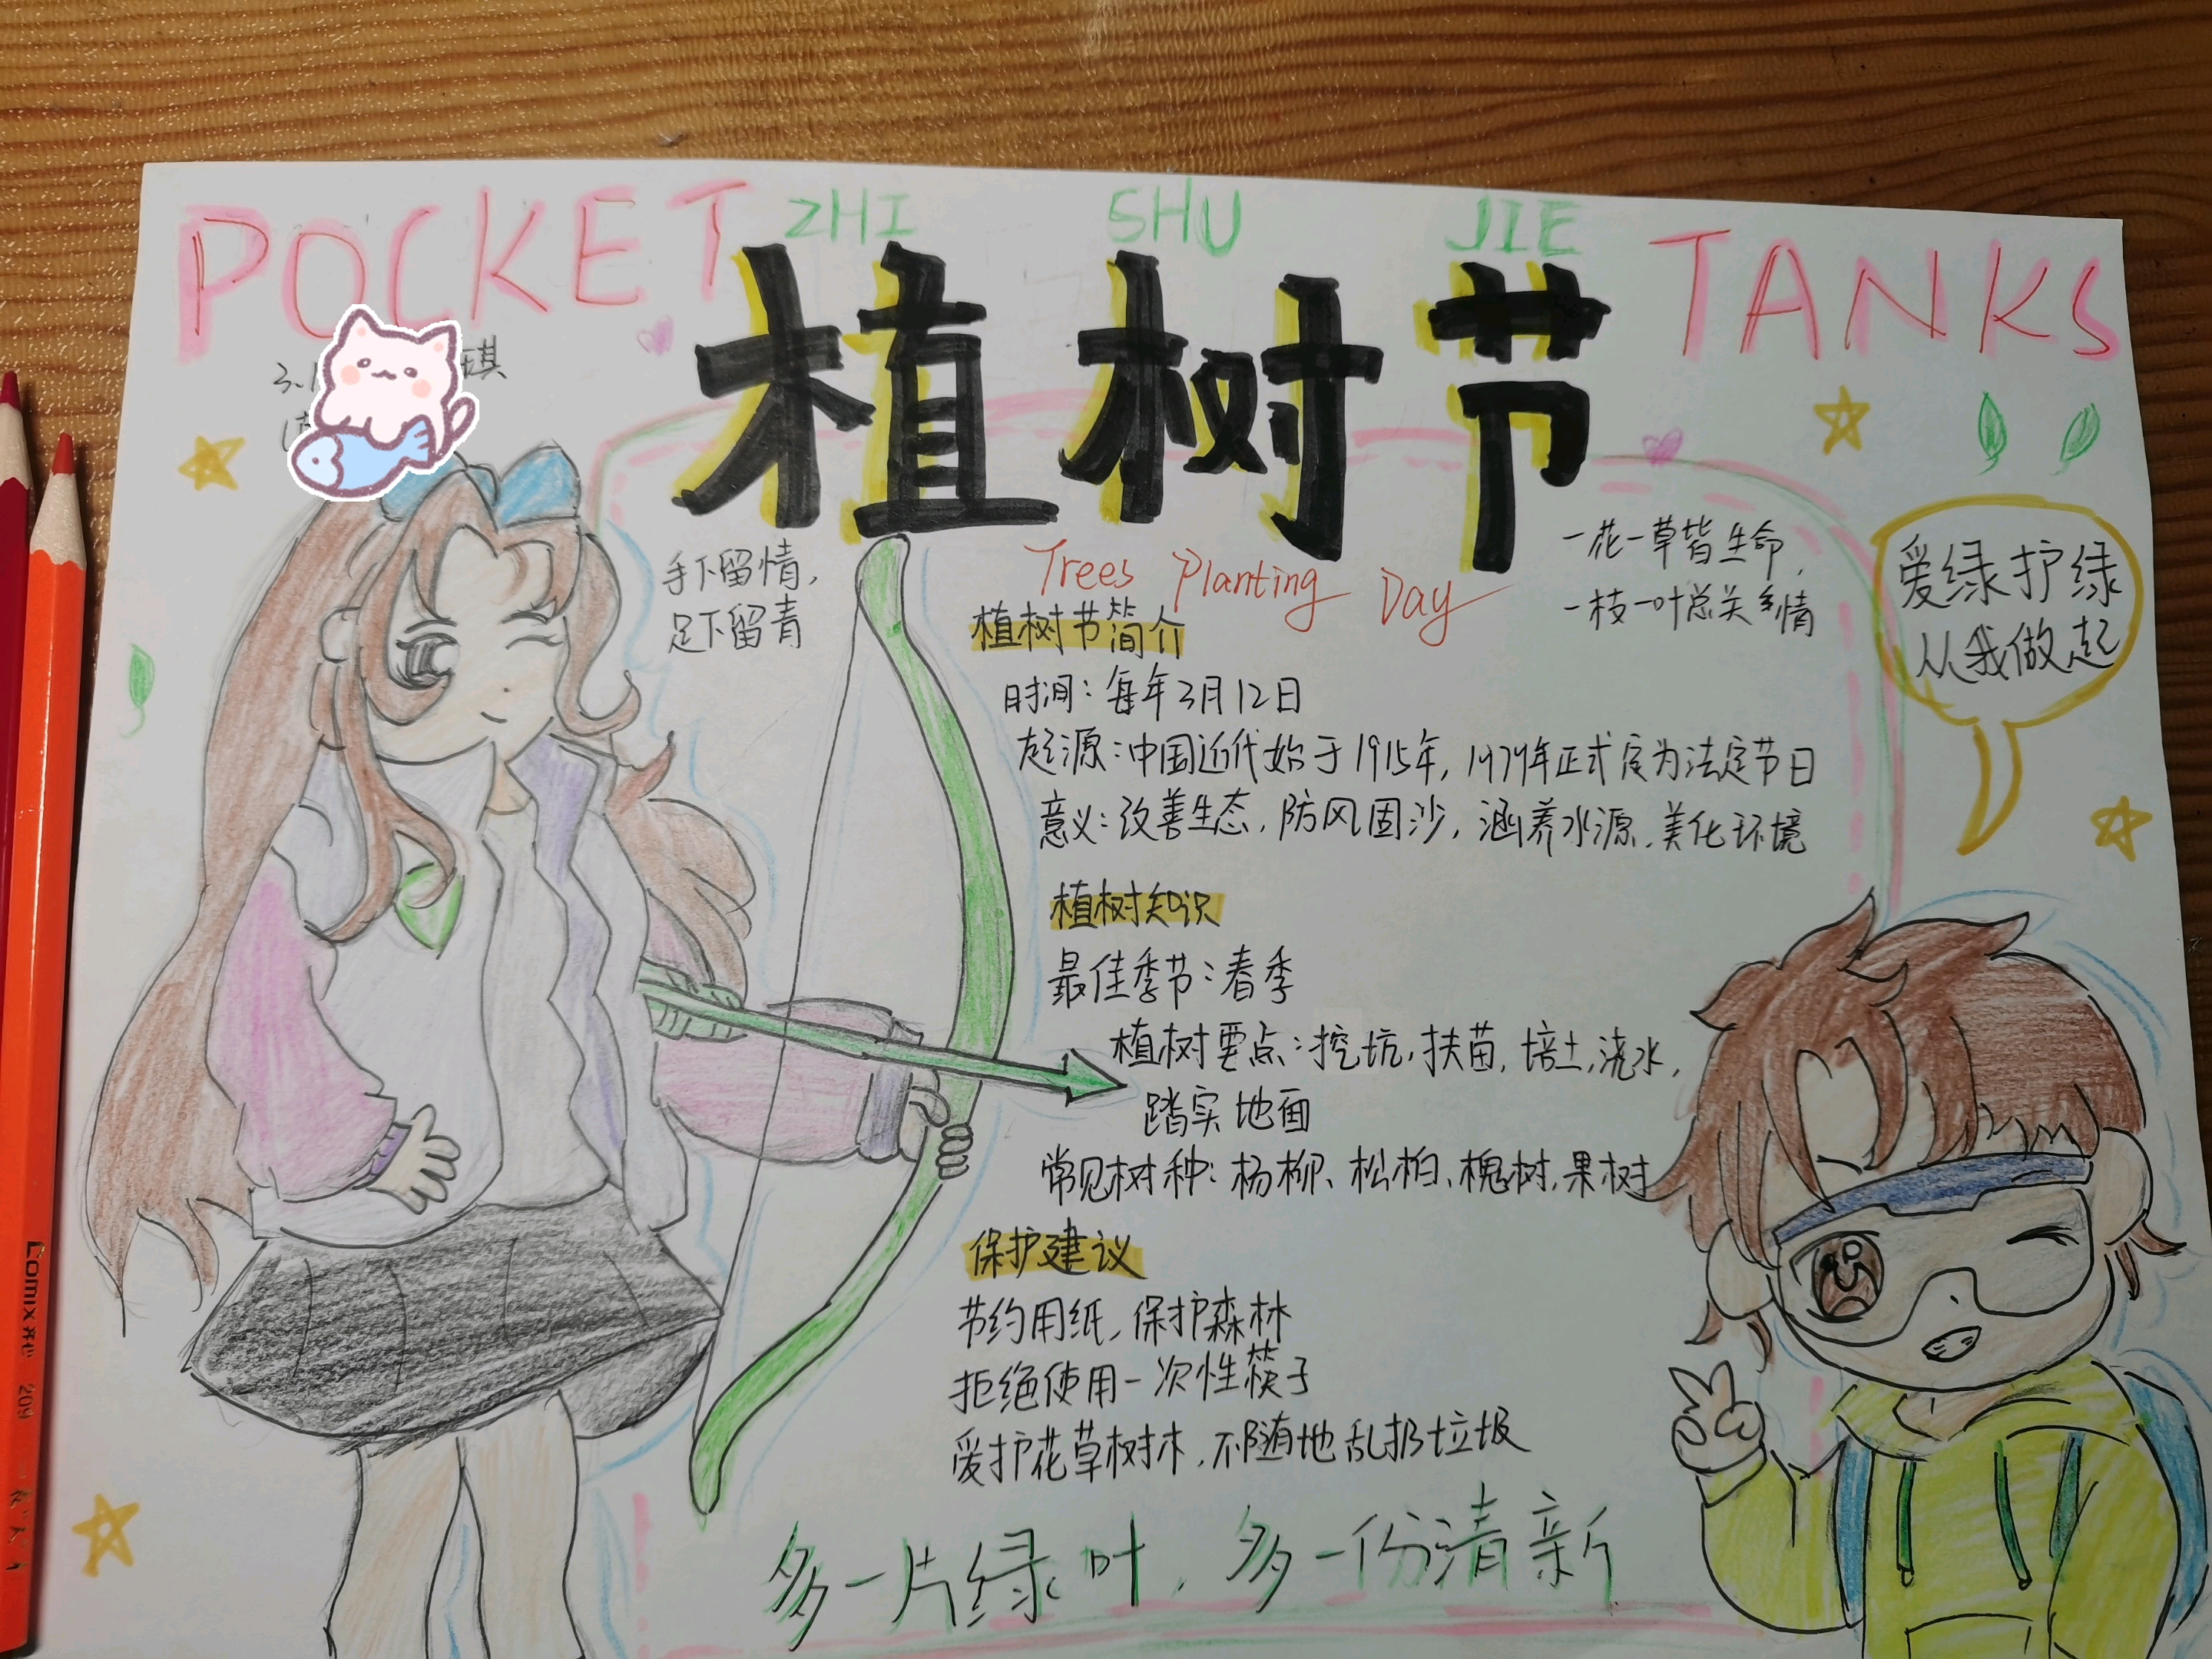 POCKET
ZHI SHU JIE
TANKS
植树节
琪
Trees Planting Day
手下留情,
足下留青
一花一草皆生命,
一枝一叶总关情
爱绿护绿
从我做起
植树节简介
时间:每年3月12日
起源:中国近代始于1915年,1979年正式定为法定节日
意义:改善生态,防风固沙,涵养水源,美化环境
植树知识
最佳季节:春季
植树要点:挖坑,扶苗,培土,浇水,
踏实地面
常见树种:杨柳、松柏、槐树,果树
保护建议
节约用纸,保护森林
拒绝使用一次性筷子
爱护花草树木,不随地乱扔垃圾
多一片绿叶,多一份清新
Comix 209